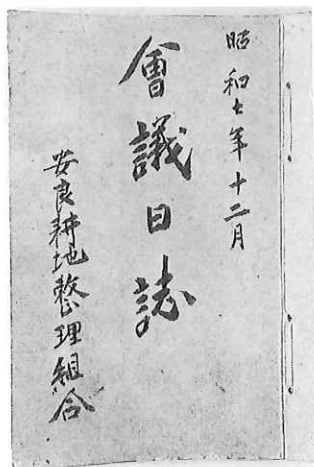 昭和七年十二月
會議日誌
安良耕地整理組合